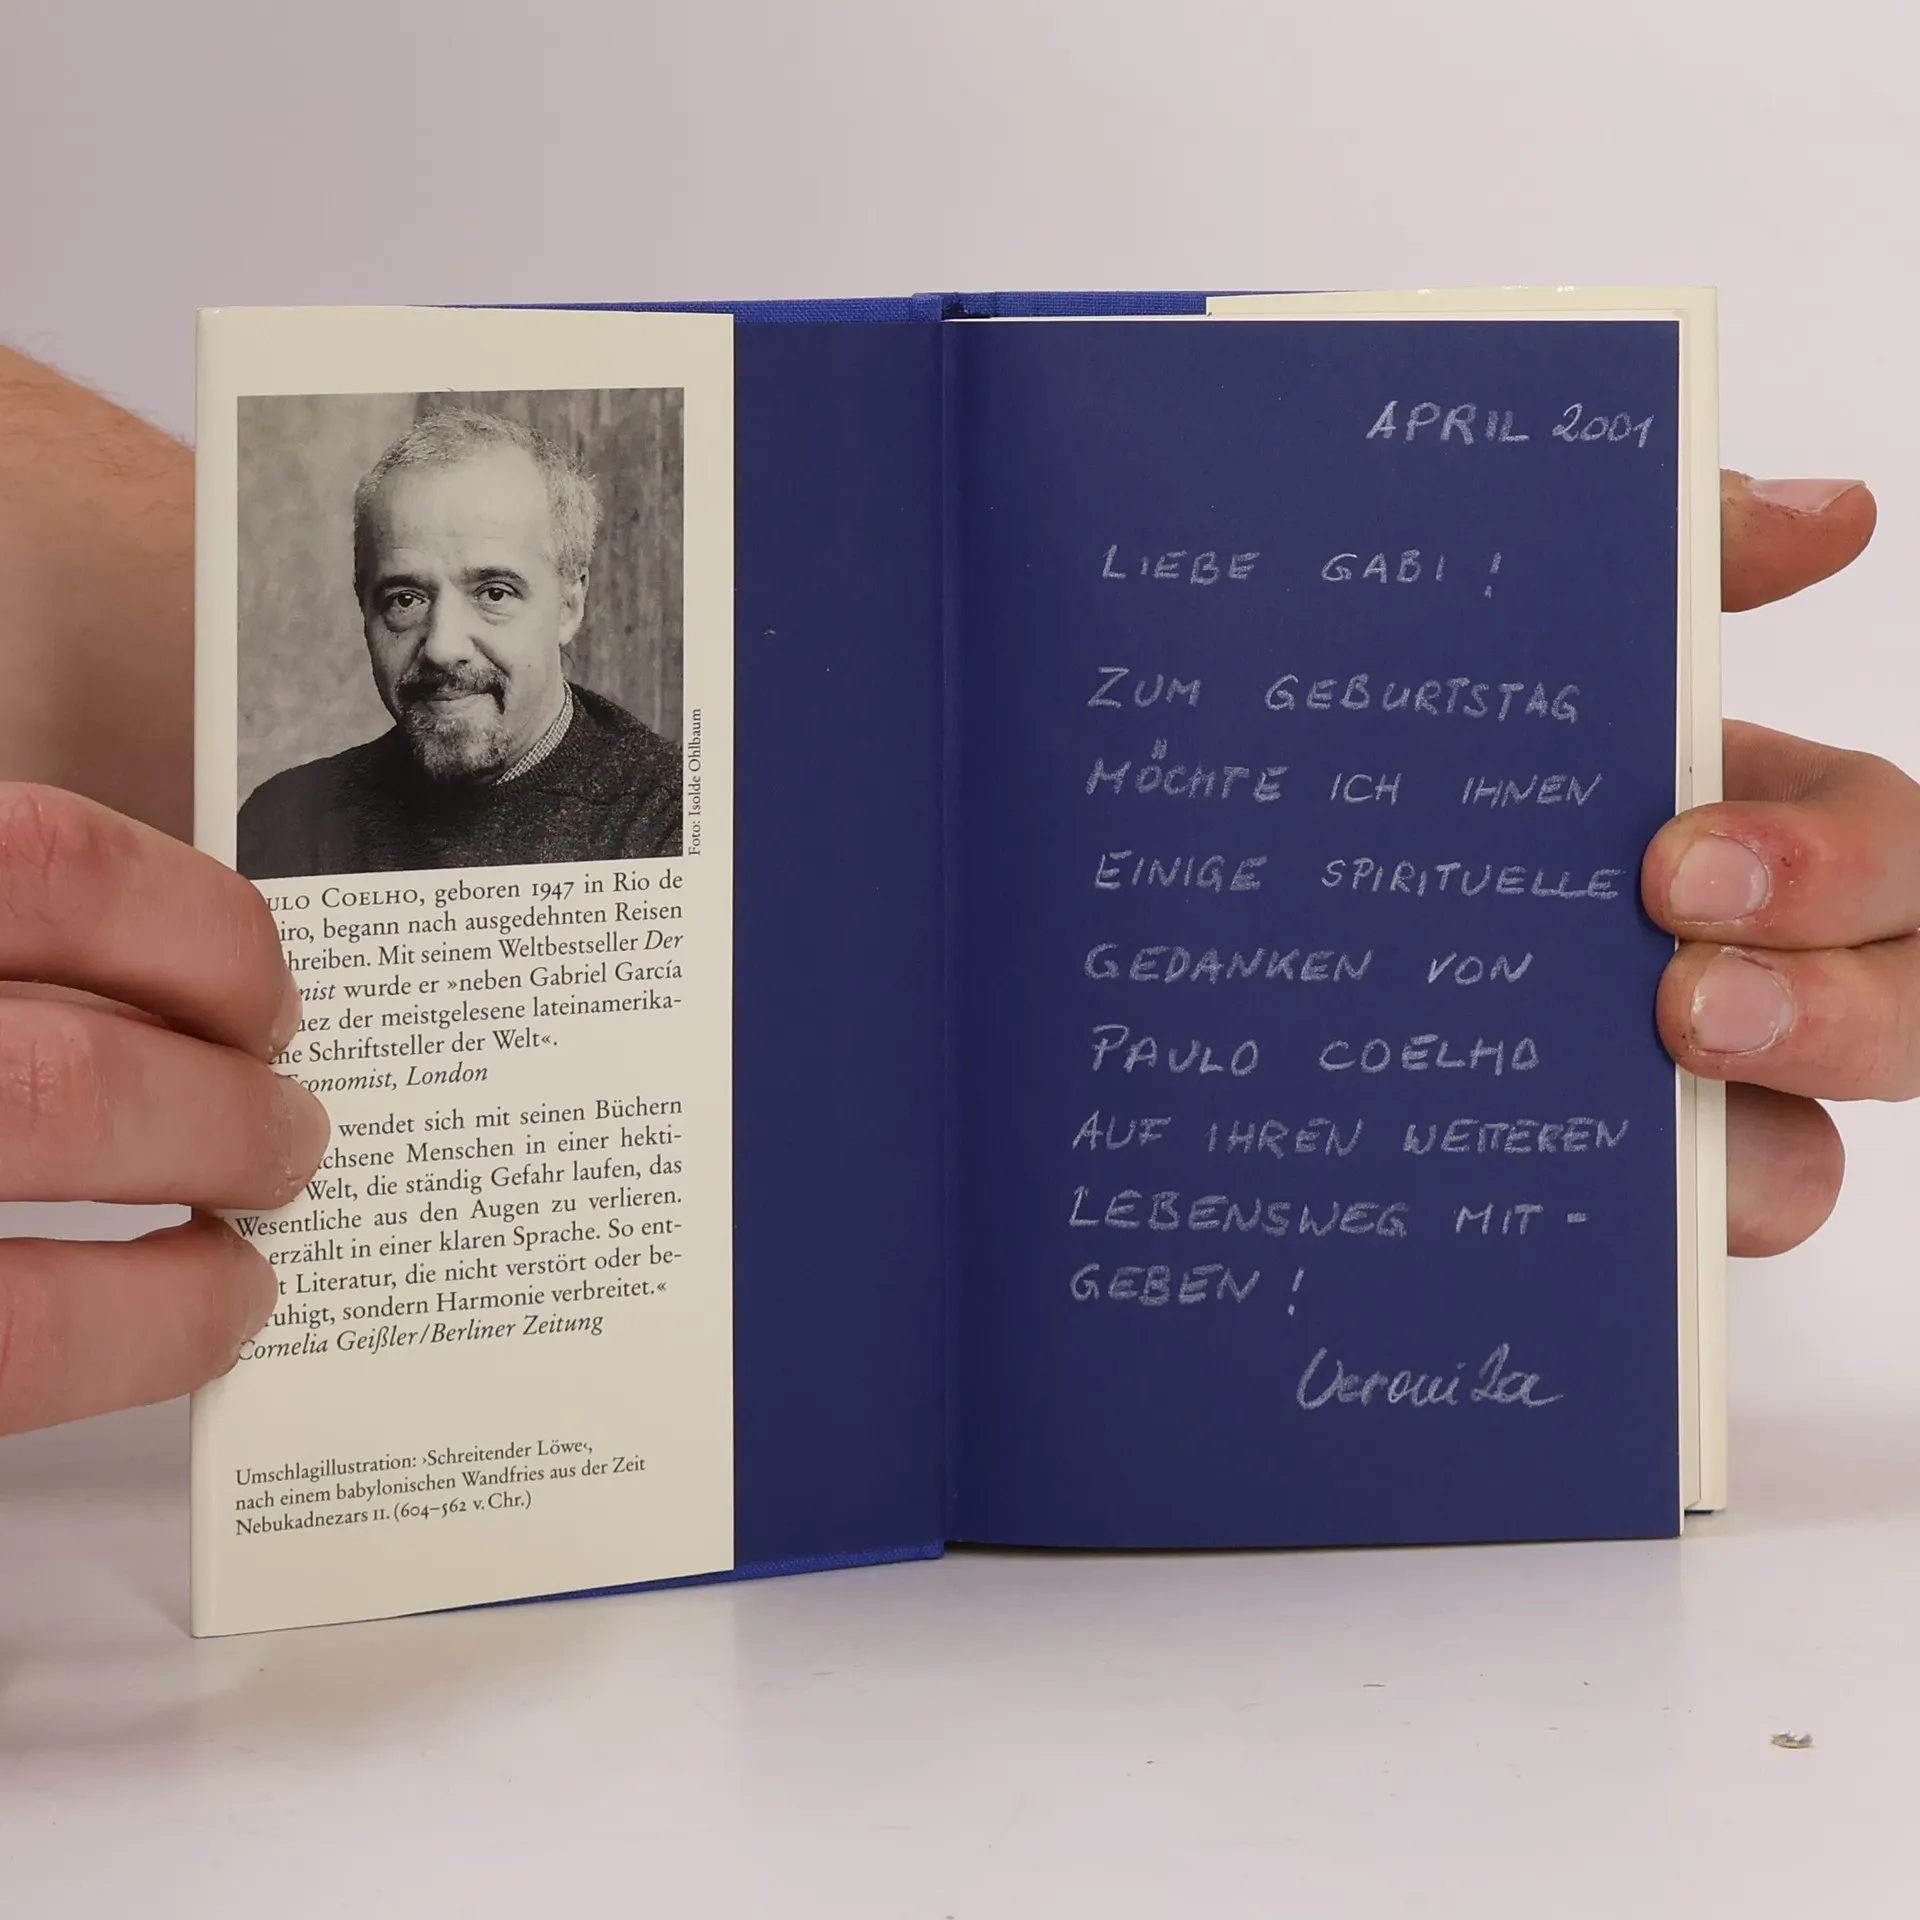 Foto: Isolde Ohlbaum
COELHO, geboren 1947 in Rio de
begann nach ausgedehnten Reisen
Mit seinem Weltbestseller Der
wurde er »neben Gabriel García
der meistgelesene lateinamerika-
Schriftsteller der Welt«.
Economist, London
wendet sich mit seinen Büchern
Menschen in einer hekti-
Welt, die ständig Gefahr laufen, das
Wesentliche aus den Augen zu verlieren.
erzählt in einer klaren Sprache. So ent-
Literatur, die nicht verstört oder be-
ruhigt, sondern Harmonie verbreitet.«
Cornelia Geißler/Berliner Zeitung
Umschlagillustration: ›Schreitender Löwe‹,
nach einem babylonischen Wandfries aus der Zeit
Nebukadnezars II. (604–562 v. Chr.)
APRIL 2001
LIEBE GABI !
ZUM GEBURTSTAG
MÖCHTE ICH IHNEN
EINIGE SPIRITUELLE
GEDANKEN VON
PAULO COELHO
AUF IHREN WEITEREN
LEBENSWEG MIT-
GEBEN !
Veronika